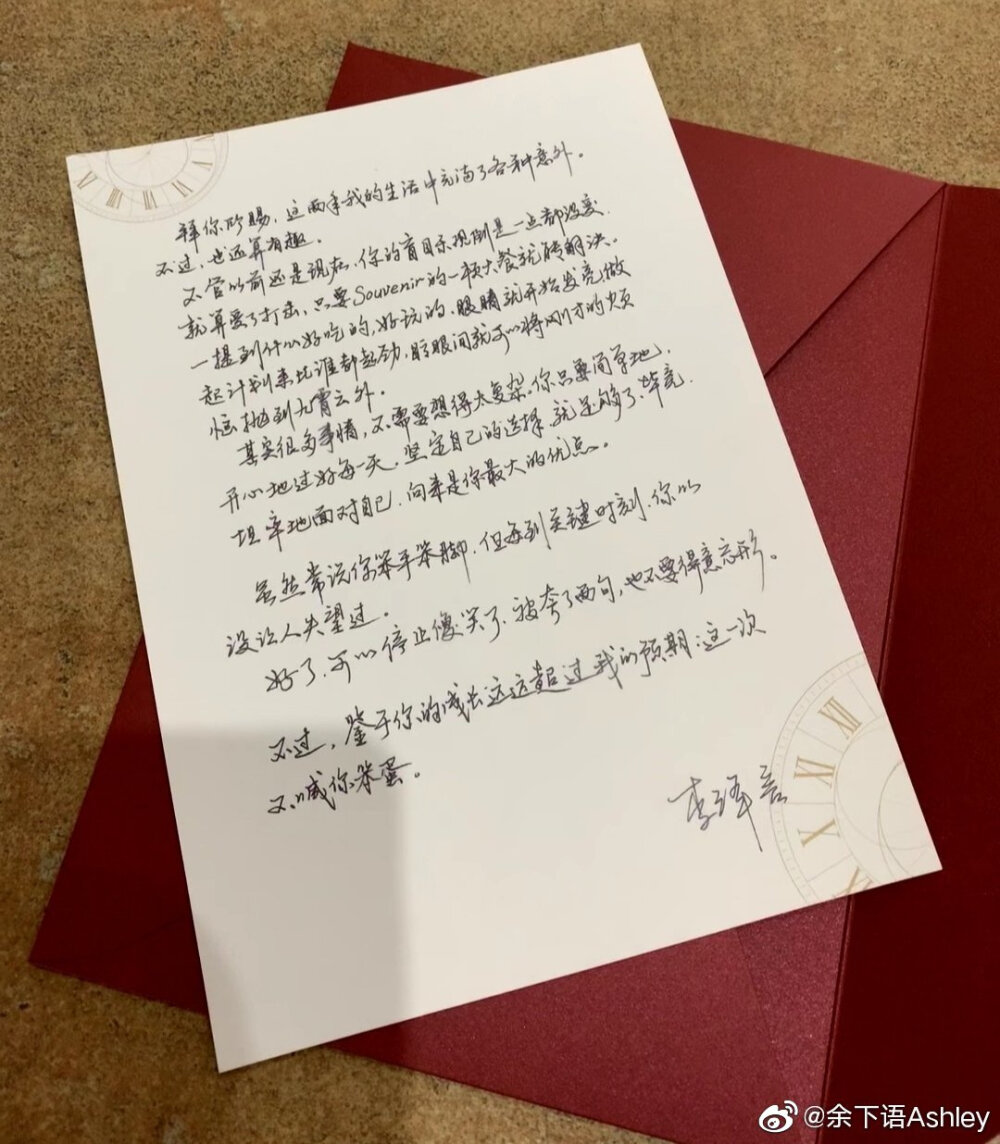 拜你所赐，这两年我的生活中充满了各种意外。
不过，也还算有趣。
不管以前还是现在，你的盲目乐观倒是一点都没变.
就算受了打击，只要Souvenir的一顿大餐就能解决。
一提到什么好吃的，好玩的，眼睛就开始发亮，做
起计划来比谁都起劲，眨眼间就可以将刚才的烦
恼抛到九霄云外。
其实很多事情，不需要想得太复杂。你只要简单地、
开心地过好每一天，坚定自己的选择，就足够了。毕竟，
坦率地面对自己，向来是你最大的优点。
虽然常说你笨手笨脚，但每到关键时刻，你从
没让人失望过。
好了，可以停止傻笑了，被夸了两句，也不要得意忘形。
不过，鉴于你的成长远远超过我的预期；这一次
不喊你笨蛋。
李泽言
@余下语Ashley